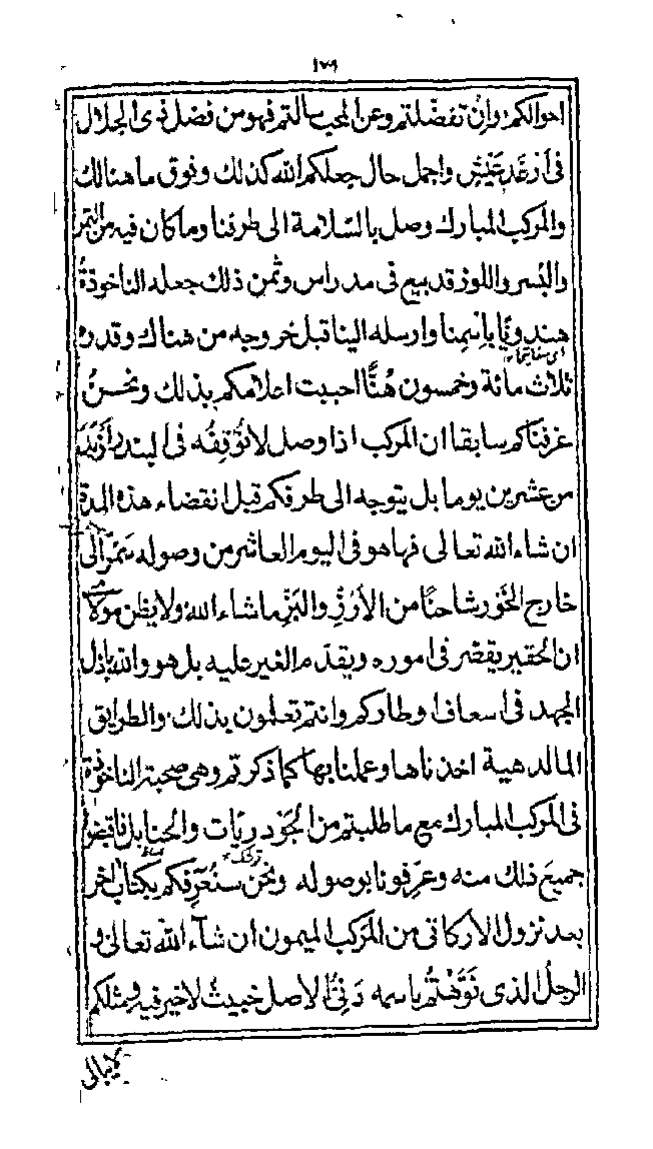 ١٧٩
احوالكم وإن تفضلتم وعن المحب سالتم فهو من فضل ذى الجلال
فى أرغد عَيْشٍ واجمل حال جعلكم الله كذلك وفوق ما هنالك
والمركب المبارك وصل بالسّلامة الى طرفنا وما كان فيه من التمر
والبُسر واللوز قد بيع فى مدراس وثمن ذلك جعله الناخوذةُ
هندويًا باسمنا وارسله الينا قبل خروجه من هناك وقدره
ثلاث مائة وخمسون هُنًّا احببت اعلامكم بذلك ونحسنُ
عرفناكم سابقا ان المركب اذا وصل لا نُوْقِفُه فى البندر أَزْيَدَ
من عشرين يوما بل يتوجه الى طرفكم قبل انقضاء هذه المدة
ان شاء الله تعالى فها هو فى اليوم العاشر من وصوله سَمَّرَ الى
خارج الخَوْر شاحنًا من الأَرُزِّ والبَزِّ ما شاء الله ولا يظن مولانا
ان الحقير يقصر فى اموره ويقدّم الغير عليه بل هو والله باذل
الجهد فى اسعاف اوطاركم وانتم تعلمون بذلك والطرايق
المالدهية اخذناها وعملنا بها كما ذكرتم وهى صحبة الناخوذة
فى المركب المبارك مع ما طلبتم من الجَوْدريّات والحنابل فاقبضوا
جميعَ ذلك منه وعرِّفونا بوصوله ونحن سنُعَرِّفكم بكتاب آخر
بعد نزول الاركاتى من المركب الميمون ان شآء الله تعالى و
الرجلُ الذى نَوَّهْتُم باسمه دَنِىُّ الاصل خبيث لا خير فيه ومثلكم
لا يبالى